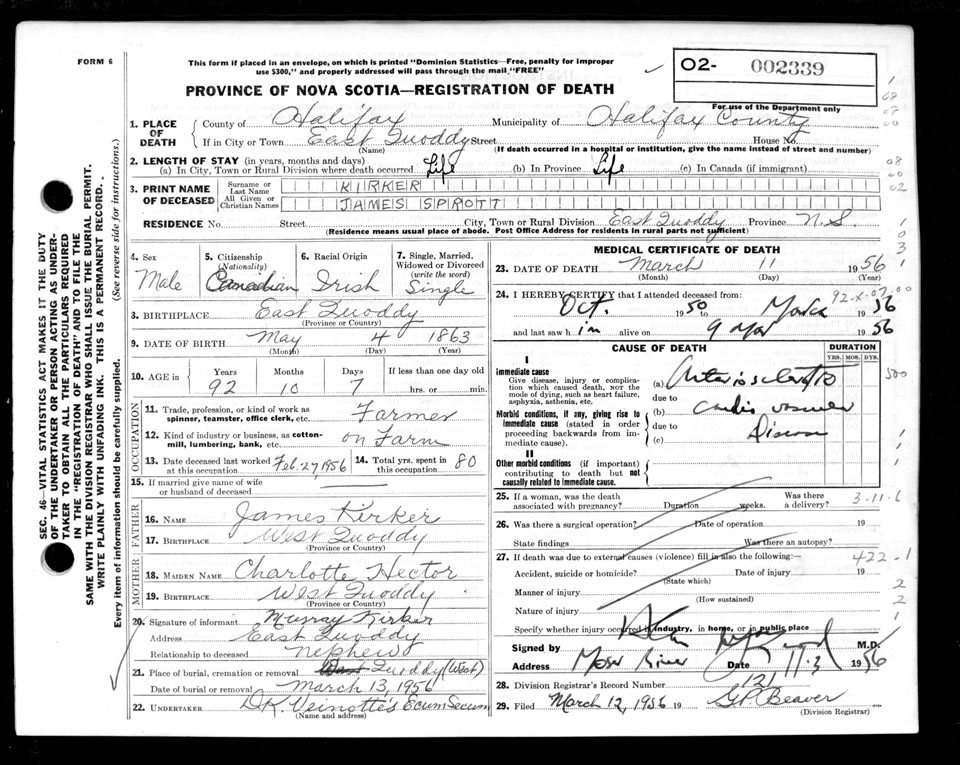 FORM 6
This form if placed in an envelope, on which is printed "Dominion Statistics—Free, penalty for improper
use $300," and properly addressed will pass through the mail "FREE"
O2- 002339
PROVINCE OF NOVA SCOTIA—REGISTRATION OF DEATH
For use of the Department only
1. PLACE OF DEATH County of Halifax Municipality of Halifax County
If in City or Town East Quoddy Street House No.
(Name) (If death occurred in a hospital or institution, give the name instead of street and number)
2. LENGTH OF STAY (in years, months and days)
(a) In City, Town or Rural Division where death occurred Life (b) In Province Life (c) In Canada (if immigrant)
3. PRINT NAME OF DECEASED Surname or Last Name KIRKER
All Given or Christian Names JAMES SPROTT
RESIDENCE No. Street City, Town or Rural Division East Quoddy Province N.S.
(Residence means usual place of abode. Post Office Address for residents in rural parts not sufficient)
SEC. 46—VITAL STATISTICS ACT MAKES IT THE DUTY
OF THE UNDERTAKER OR PERSON ACTING AS UNDER-
TAKER TO OBTAIN ALL THE PARTICULARS REQUIRED
IN THE "REGISTRATION OF DEATH" AND TO FILE THE
SAME WITH THE DIVISION REGISTRAR WHO SHALL ISSUE THE BURIAL PERMIT.
WRITE PLAINLY WITH UNFADING INK. THIS IS A PERMANENT RECORD.
Every item of information should be carefully supplied. (See reverse side for instructions.)
4. Sex Male
5. Citizenship (Nationality) Canadian
6. Racial Origin Irish
7. Single, Married, Widowed or Divorced (write the word) Single
3. BIRTHPLACE East Quoddy
(Province or Country)
9. DATE OF BIRTH May 4 1863
(Month) (Day) (Year)
10. AGE in Years 92 Months 10 Days 7 If less than one day old hrs. or min.
OCCUPATION
11. Trade, profession, or kind of work as spinner, teamster, office clerk, etc. Farmer
12. Kind of industry or business, as cotton-mill, lumbering, bank, etc. on Farm
13. Date deceased last worked at this occupation Feb. 27, 1956 14. Total yrs. spent in this occupation 80
15. If married give name of wife or husband of deceased
FATHER
16. NAME James Kirker
17. BIRTHPLACE West Quoddy
(Province or Country)
MOTHER
18. MAIDEN NAME Charlotte Hector
19. BIRTHPLACE West Quoddy
(Province or Country)
20. Signature of informant Murray Kirker
Address East Quoddy
Relationship to deceased nephew
21. Place of burial, cremation or removal West Quoddy (West)
Date of burial or removal March 13, 1956
22. UNDERTAKER D.K. Veinotte's Ecum Secum
(Name and address)
MEDICAL CERTIFICATE OF DEATH
23. DATE OF DEATH March 11 1956
(Month) (Day) (Year)
92-X-07-00
24. I HEREBY CERTIFY that I attended deceased from:
Oct. 1950 to March 1956
and last saw him alive on 9 Mar 1956
CAUSE OF DEATH
DURATION
YRS. MOS. DYS.
I
Immediate cause
Give disease, injury or complica-
tion which caused death, NOT the
mode of dying, such as heart failure,
asphyxia, asthenia, etc.
Morbid conditions, if any, giving rise to
immediate cause (stated in order
proceeding backwards from im-
mediate cause).
(a) Arteriosclerotic
due to
(b) cardio vascular
due to
(c) Disease
II
Other morbid conditions (if important)
contributing to death but not
causally related to immediate cause.
25. If a woman, was the death associated with pregnancy? Duration weeks. Was there a delivery?
3-11-6
26. Was there a surgical operation? Date of operation 19
State findings Was there an autopsy?
27. If death was due to external causes (violence) fill in also the following:—
422-1
Accident, suicide or homicide? Date of injury 19
(State which)
Manner of injury
(How sustained)
Nature of injury
Specify whether injury occurred in industry, in home, or in public place
Signed by M.D.
Address Moser River Date 11-3 1956
28. Division Registrar's Record Number 121
29. Filed March 12, 1956 19 G.P. Beaver
(Division Registrar)